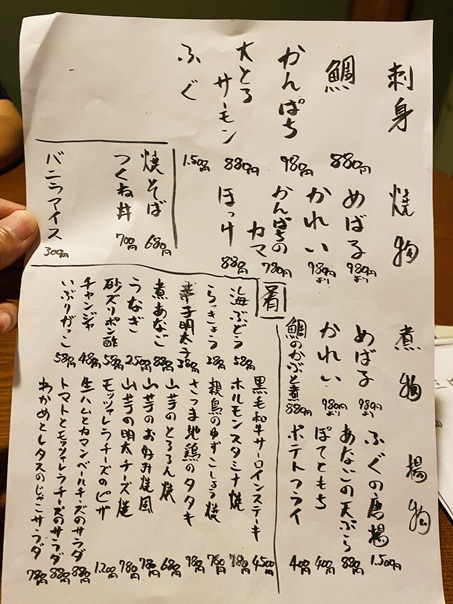 刺身
鯛 880円
かんぱち 980円
大とろサーモン 880円
ふぐ 1.500円
焼物
めばる 980円より
かれい 980円より
かんぱちのカマ 780円
ほっけ 880円
焼そば 680円
つくね丼 700円
バニラアイス 300円
煮物
めばる 980円より
かれい 980円より
鯛のかぶと煮 880円
揚物
ふぐの唐揚 1.500円
あなごの天ぷら 880円
ぽてともち 400円
ポテトフライ 400円
肴
海ぶどう 580円
らっきょう 380円
辛子明太子
煮あなご 880円
うなぎ 2.500円
砂ズリポン酢 580円
チャンジャ 480円
いぶりがっこ 580円
黒毛和牛サーロインステーキ 4.500円
ホルモンスタミナ焼 980円
親鳥のゆずこしょう焼 780円
さつま地鶏のタタキ 980円
山芋のとろろ焼 680円
山芋のお好み焼風 780円
山芋の明太チーズ焼 780円
モッツァレラチーズのピザ 1.200円
生ハムとカマンベールチーズのサラダ 880円
トマトとモッツァレラチーズのサラダ 880円
わかめとレタスのじゃこサラダ 780円